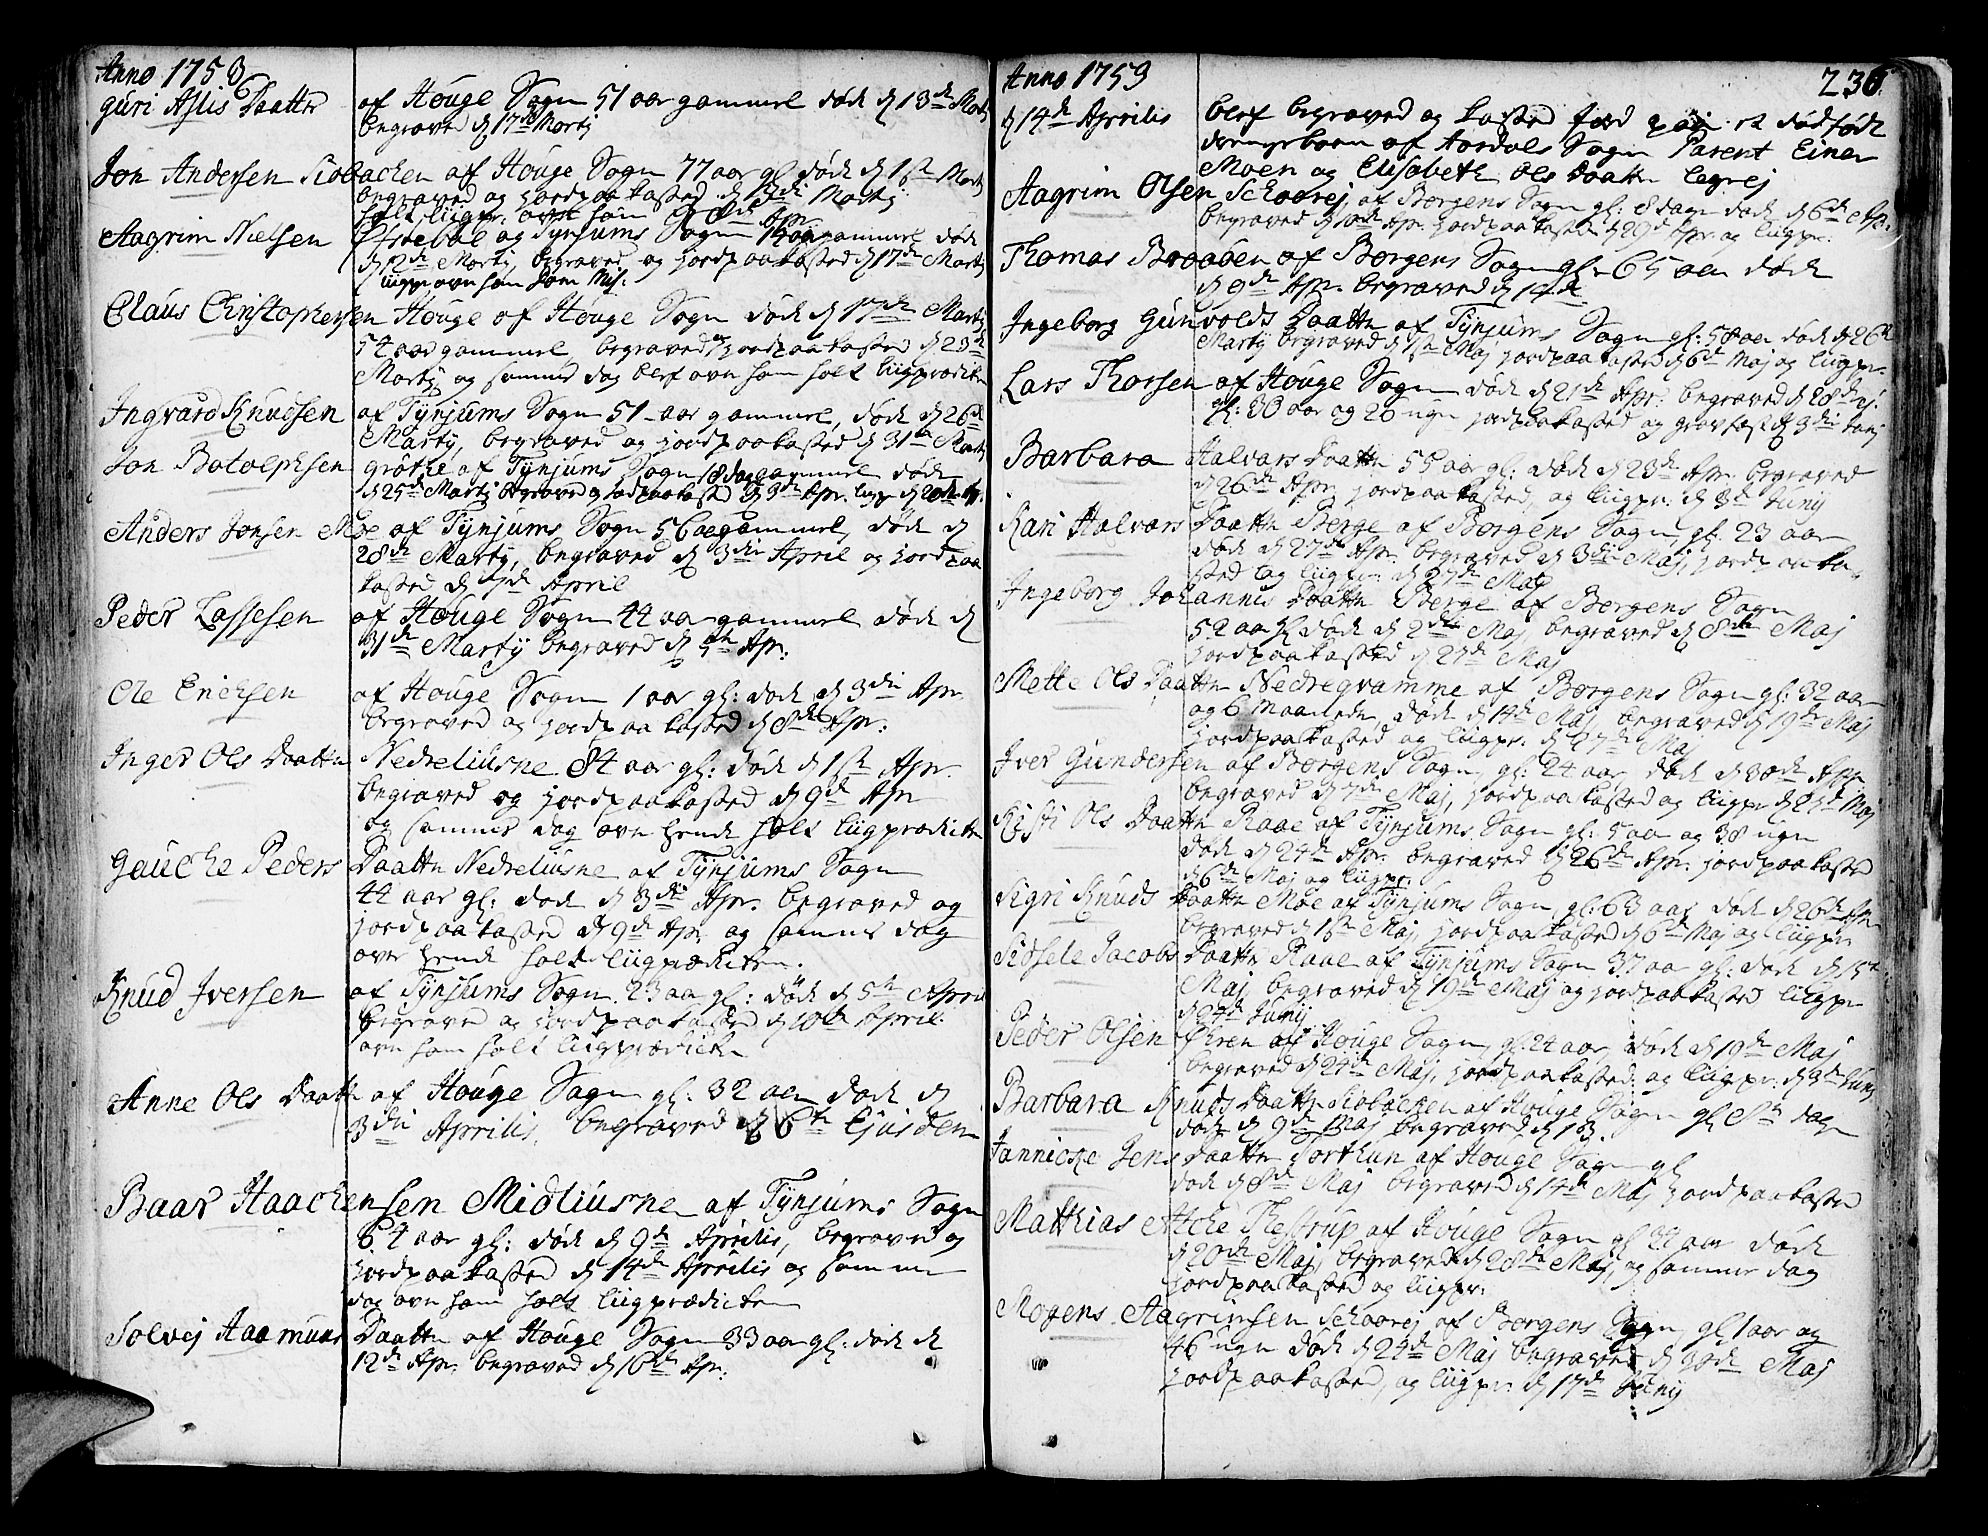 Anno 1753
Guri Aslis Daatter af Houge Sogn 51 aar gammel død d 13de Marti
begraved d 17de Martij
Jon Andersen af Houge Sogn 77 aar gl død d 1ste Marti
begraved og jordpaakasted d Martij
holt liigpr. over ham d 8de Apr
Aagrim Nielsen Øfstebøe af Tynjums Sogn gammel død
d 12de Martij, begraved og jordpaakasted d 17de Martij
liigpr over ham Dom Mis:
Claus Christophersen Houge af Houge Sogn død d 17de Martij
54 aar gammel, begraved og jordpaakasted d 23de
Martij og sammed dag blef over ham holt liigprædiken
Ingvard Knudsen af Tynjums Sogn 51 aar gammel, død d 26de
Martij, begraved og jordpaakasted d 31te Martij
Jon Botolphsen grøthe af Tynjums Sogn 8 dage gammel død
d 25de Martij begraved og jordpaakasted d 3de Apr. liigpr d
Anders Jonsen Moe af Tynjums Sogn 56 aar gammel, død d
28de Martij, begraved d 3die April og jordpaa
kasted d 7de April
Peder Lassesen af Houge Sogn 44 aar gammel død d
31de Martij begraved d 5te Apr:
Ole Erichsen af Houge Sogn 1 aar gl: død d 3die Apr.
begraved og jordpaakasted d 8de Apr:
Inger Ols Daatter Nedreliusne 84 aar gl: død d 1ste Apr.
begraved og jordpaakasted d 9de Apr
og sammed dag over hende holt liigprædiken
Gauche Peders Daatter Nedreliusne af Tynjums Sogn
44 aar gl: død d 3die Apr. begraved og
jordpaakasted d 9de Apr og sammed dag
over hende holt liigprædiken.
Knud Iversen af Tynjums Sogn 23 aar gl: død d 5te April
begraved og jordpaakasted d 10de April.
over ham holt liigprædiken
Anne Ols Daatter af Houge Sogn gl: 32 aar død d
3die Aprilis, begraved d 6te Ejusdem
Baar Haachensen Midliusne af Tynjums Sogn
64 aar gl: død d 9de Aprilis, begraved og
jordpaakasted d 14de Aprilis og samme
dag over ham holt liigprædiken
Solvej Aamunds Daatter af Houge Sogn 33 aar gl: død d
12de Apr. begraved d 16de Apr.
Anno 1759 236
d 14de Aprilis blef begraved og kasted Jord paa et dødfødt
drengebarn af Aardals Sogn Parent Einer
Moen og Elisabeth Ols Daatter Legrej
Aagrim Olsen Schaarej af Borgens Sogn gl: 8 dage død d 6de Apr.
begraved d 10de Apr. jordpaakasted d 29de Apr. og liigpr:
Thomas Braaben af Borgens Sogn gl. 65 aar døde
d 9de Apr. begraved d 14de
Ingeborg Gunvolds Daatter af Tynjums Sogn gl: 58 aar død d 26de
Martij begraved d 1ste Maj jordpaakasted d 6te Maj og liigpr.
Lars Thorsen af Houge Sogn død d 21de Apr. begraved d 28de ej.
gl: 30 aar og 26 ugr jordpaakasted og gravfæst d 3die Junij
Barbara Halvars Daatter 55 aar gl: død d 23de Apr. begraved
d 26de Apr. jordpaakasted, og liigpr. d 3de Junij
Kari Halvars Daatter Berge af Borgens Sogn, gl. 23 aar
død d 27de Apr. begraved d 3die Maj, jordpaaka
sted og liigpr. d 27de Maj
Ingeborg Johannis Daatter Berge af Borgens Sogn
52 aar gl døde d 2de Maj, begraved d 8de Maj
jordpaakasted d 27de Maj
Mette Ols Daatter Nedreqvamme af Borgens Sogn gl: 32 aar
og 6 Maaneder, døde d 14de Maj, begraved d 19de Maj
jordpaakasted og liigpr. d 27de Maj
Iver Gundersen af Borgens Sogn, gl: 24 aar, død d 30de Apr
begraved d 7de Maj, jordpaakasted og liigpr d 27de Maj
Kisti Ols Daatter Raae af Tynjums Sogn gl: 5 aar og 38 ugr
død d 24de Apr. begraved d 26de Apr. jordpaakasted
d 6te Maj og liigpr.
Sigri Knuds Daatter Moe af Tynjums Sogn, gl: 63 aar død d 26de Apr
begraved d 1ste Maj, jordpaakasted d 6te Maj og liigpr
Sidsele Jacobs Daatter Raae af Tynjums Sogn 37 aar gl: død d 15de
Maj begraved d 19de Maj og jordpaakasted liigpr
d 24de Junij
Peder Olsen Øhren af Houge Sogn, gl. 24 aar, død d 19de Maj
begraved d 24de Maj, jordpaakasted og liigpr: d 3de Junij
Barbara Knuds Daatter af Houge Sogn gl dage
død d 9de Maj begraved d 13.
Jannicke Jens Daatter Torthun af Houge Sogn gl
død d 8de Maj begraved d 14de Maj jordpaakasted
Mathias Atche Thestrup af Houge Sogn gl 34 aar døde
d 20de Maj, begraved d 28de Maj, og sammed dag
jordpaakasted og liigpr:
Mogens Aagrimsen Schaarej af Borgens Sogn, gl 1 aar og
46 ugr døde d 24de Maj begraved d 30de Maj
jordpaakasted, og liigpr. d 17de Junij